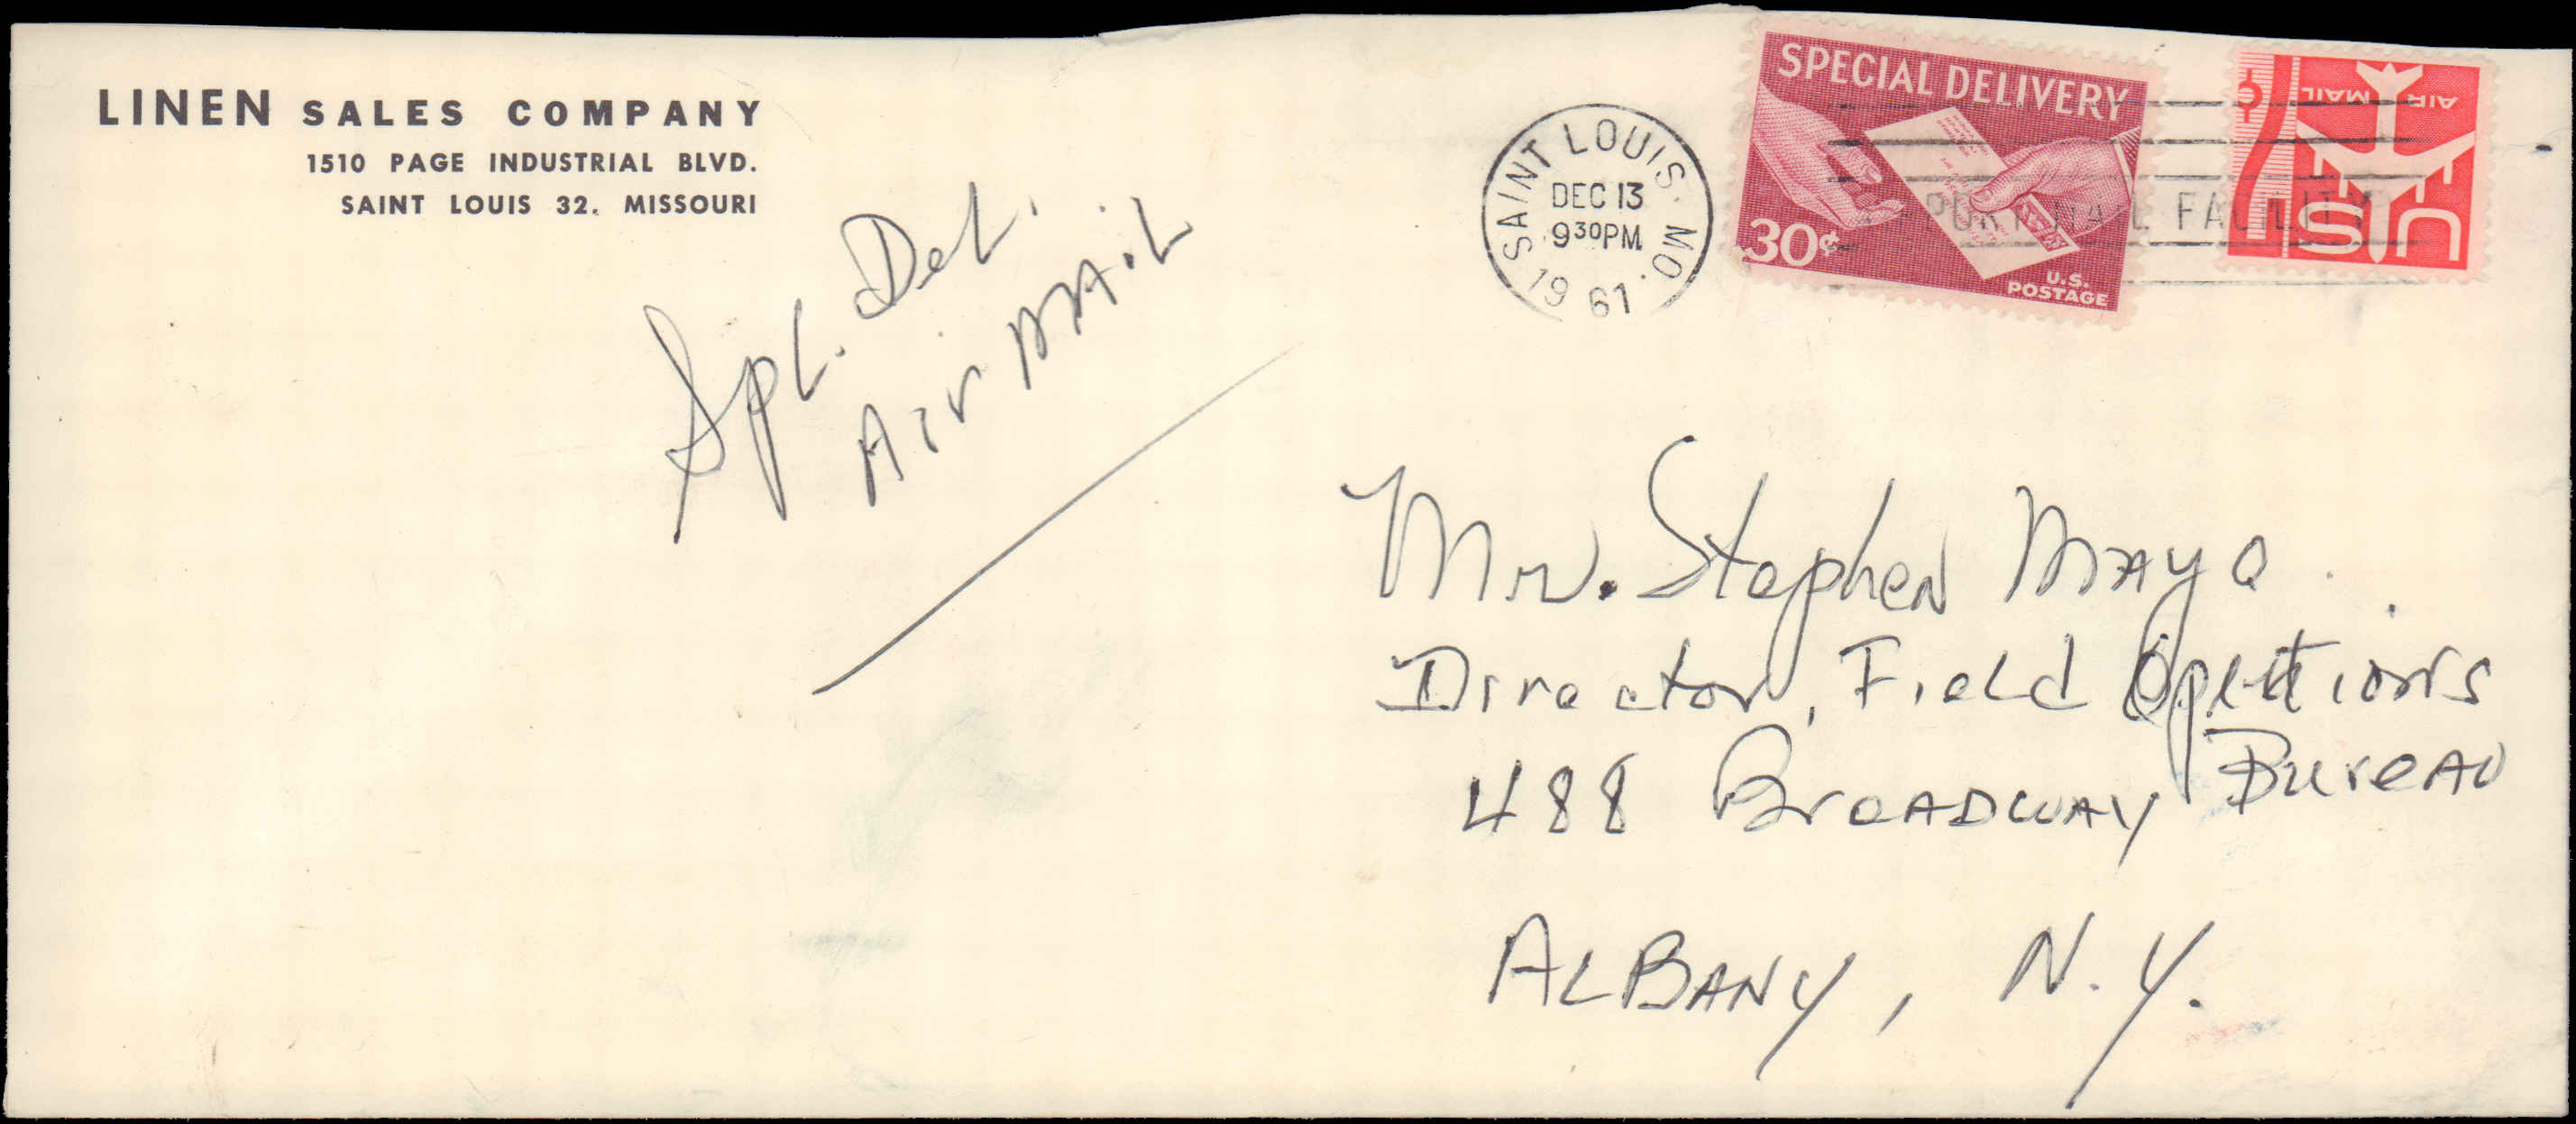 LINEN SALES COMPANY
1510 PAGE INDUSTRIAL BLVD.
SAINT LOUIS 32, MISSOURI
Spl. Del.
Air Mail
SAINT LOUIS. MO.
DEC 13
9 30 PM
1961
AIRPORT MAIL FACILITY
SPECIAL DELIVERY
30¢
U.S.
POSTAGE
AIR MAIL
US
7¢
Mr. Stephen Mayo
Director, Field Opertions
Bureau
488 Broadway
Albany, N.Y.